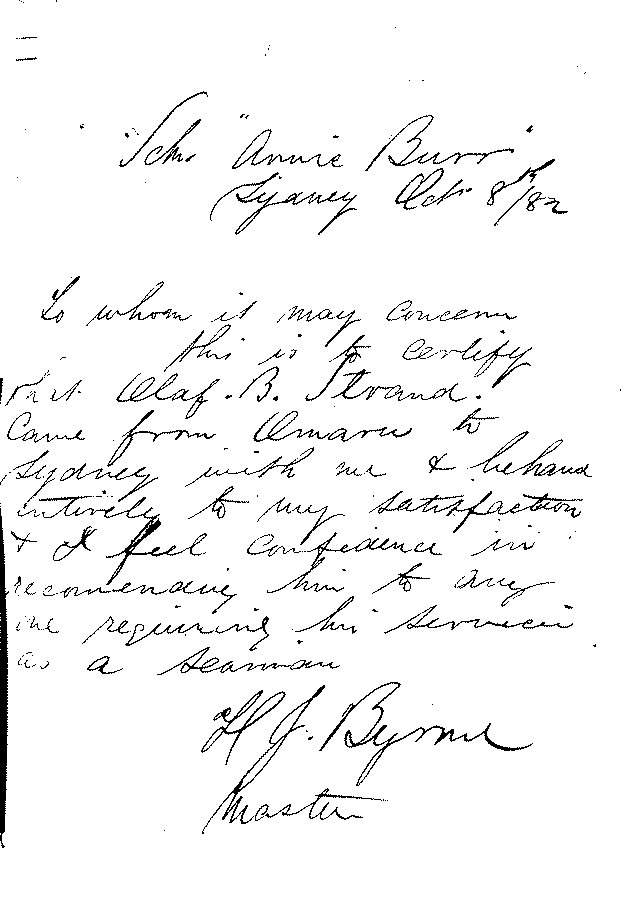 Schr "Annie Burr"
Sydney Oct 8th/82
To whom it may concern
this is to certify
that Olaf. B. Strand.
Came from Omaru to
Sydney with me & behaved
entirely to my satisfaction
& I feel confidence in
recomending him to any
one requiring his services
as a seaman
H J. Byrne
Master